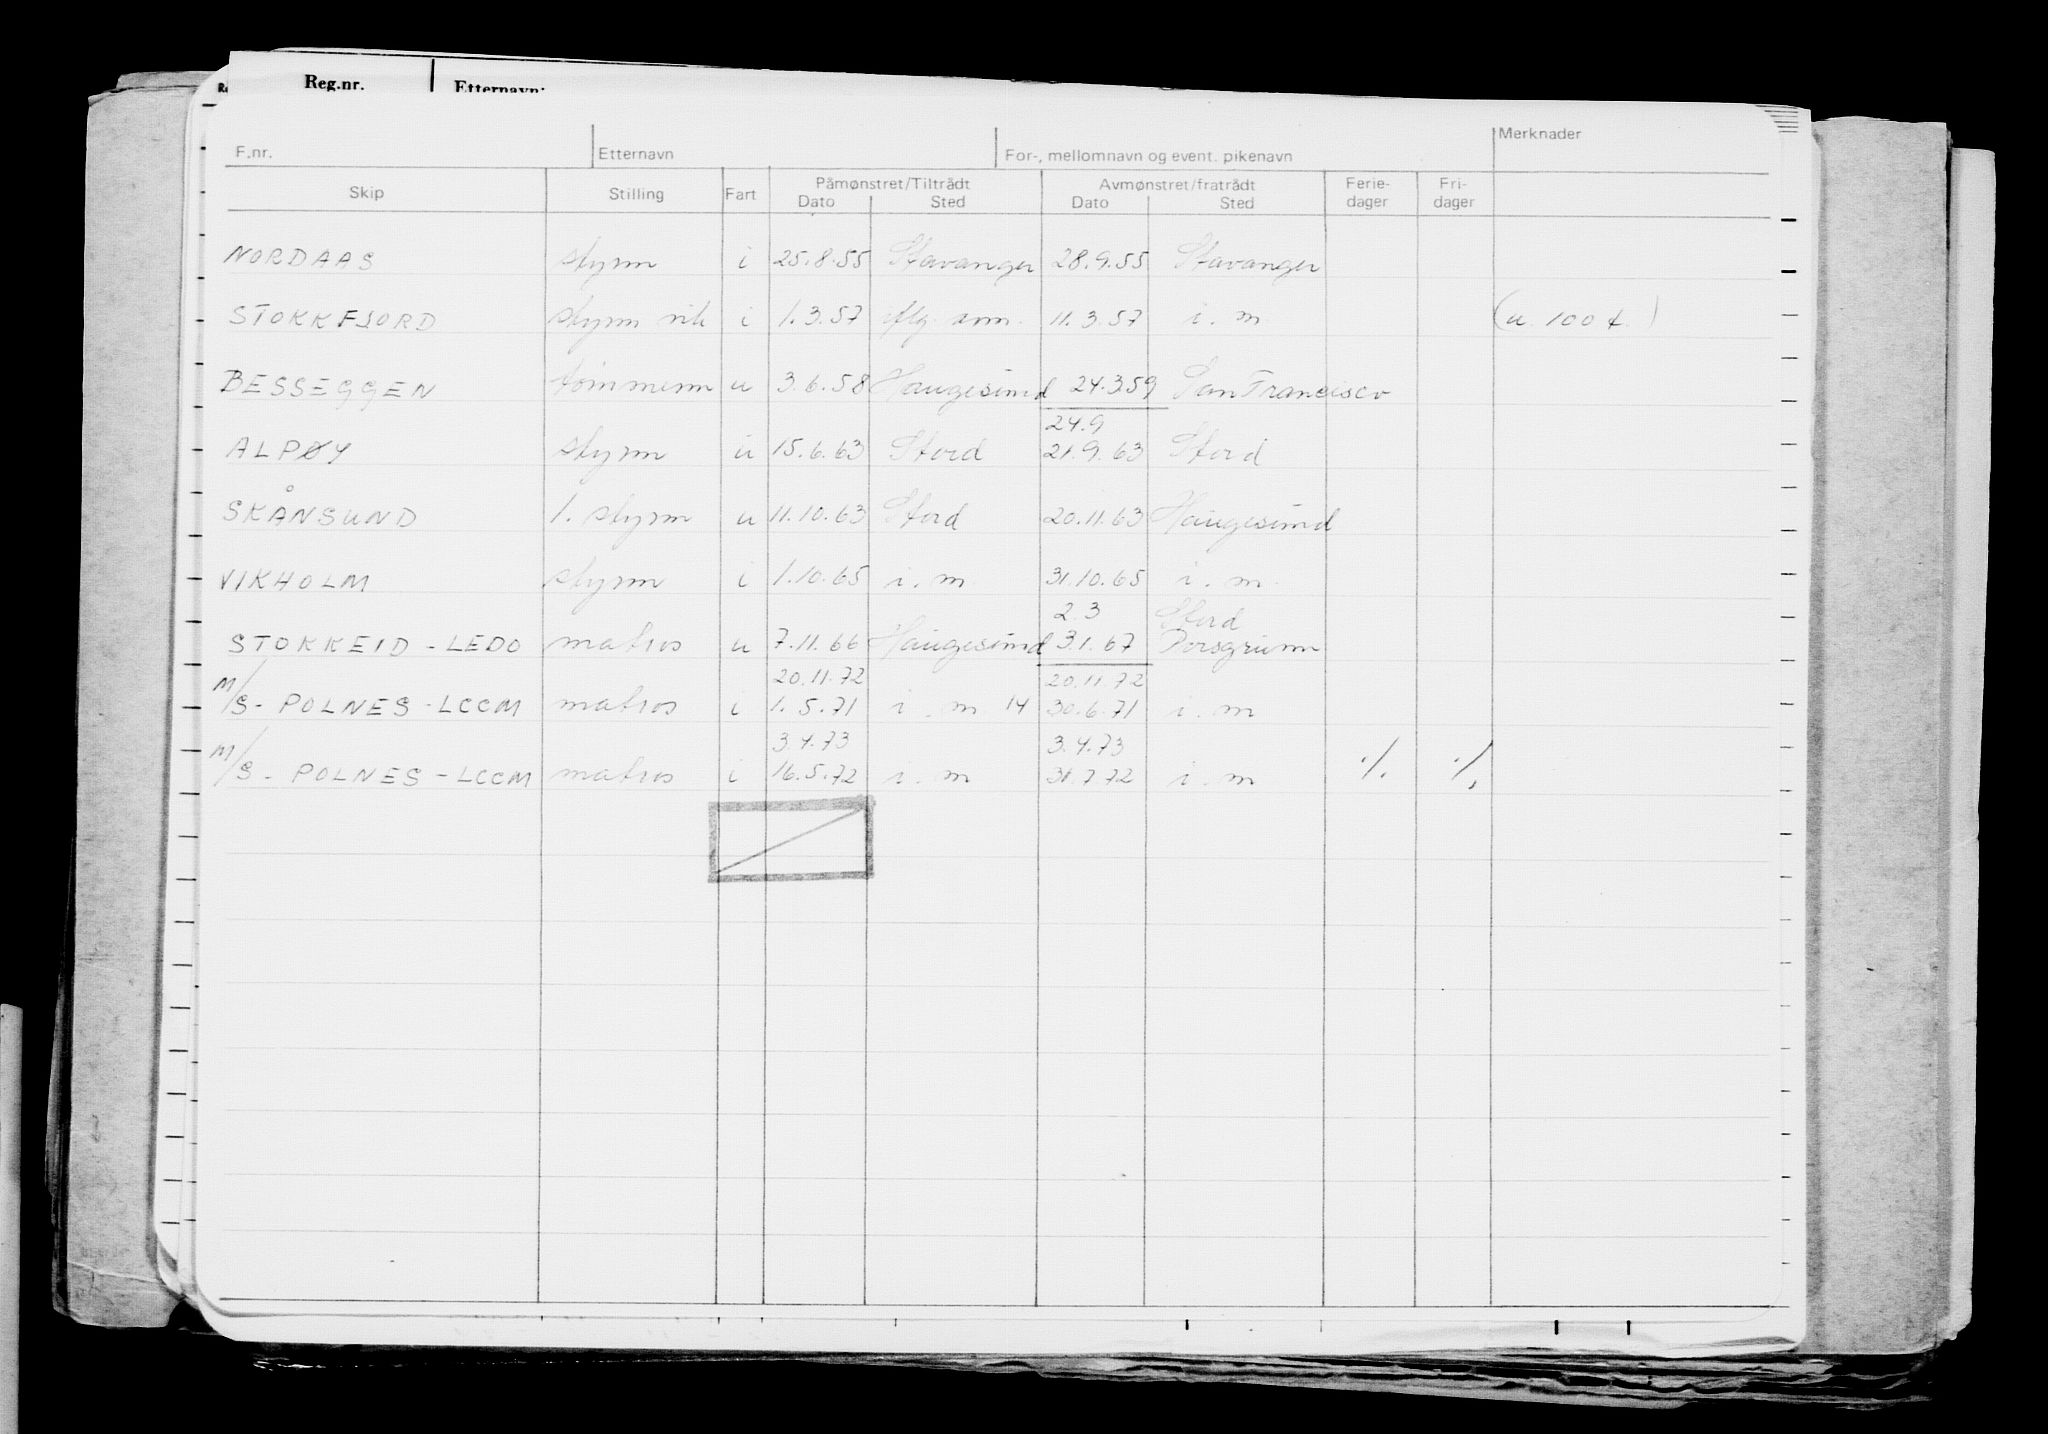 Reg.nr. Etternavn:
F.nr. Etternavn For-, mellomnavn og event. pikenavn Merknader
Skip Stilling Fart Påmønstret/Tiltrådt Avmønstret/fratrådt Ferie- Fri-
Dato Sted Dato Sted dager dager
NORDAAS styrm i 25.8.55 Stavanger 28.9.55 Stavanger
STOKKFJORD styrm vik i 1.3.57 iflg. 11.3.57 i.m. (u. 100 t.)
BESSEGGEN tømmerm u 3.6.58 Haugesund 24.3.59 San Francisco
24.9
ALPØY styrm u 15.6.63 Stord 21.9.63 Stord
SKÅNSUND 1. styrm u 11.10.63 Stord 20.11.63 Haugesund
VIKHOLM styrm i 1.10.65 i.m. 31.10.65 i.m.
2.3 Stord
STOKKEID - LEDO matros u 7.11.66 Haugesund 3.1.67 Porsgrunn
20.11.72 20.11.72
M/S - POLNES - LCCM matros i 1.5.71 i.m 14 30.6.71 i.m
3.4.73 3.4.73
M/S - POLNES - LCCM matros i 16.5.72 i.m 31.7.72 i.m ./. ./.